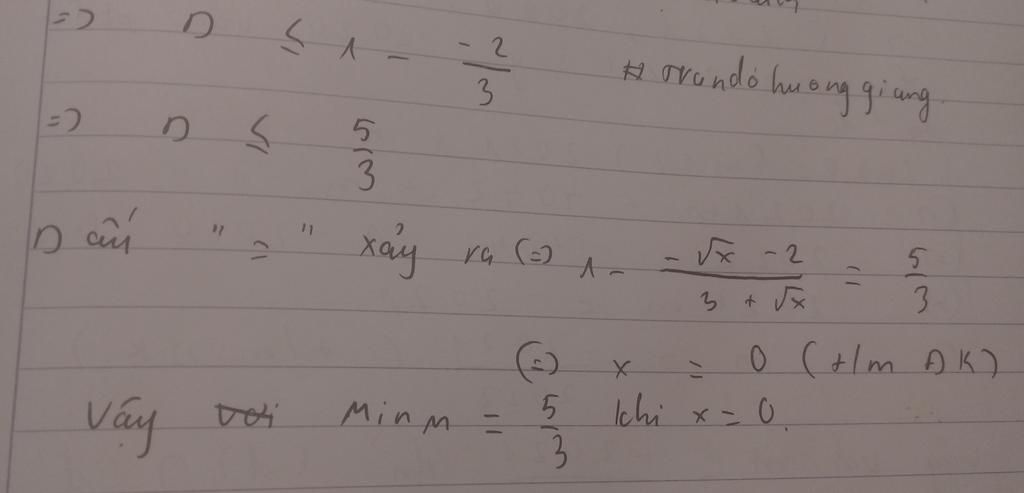 => D ≤ 1 - \frac{-2}{3} # trandohuonggiang
=> D ≤ \frac{5}{3}
Dấu "=" xảy ra (=) 1 - \frac{-\sqrt{x} - 2}{3 + \sqrt{x}} = \frac{5}{3}
(=) x = 0 (t/m ĐK)
Vậy với Min M = \frac{5}{3} khi x = 0.